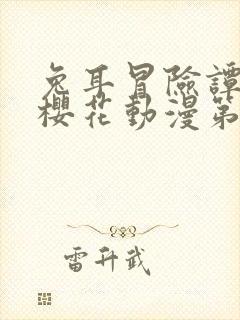 兔耳冒險譚
櫻花動漫第
雷升武